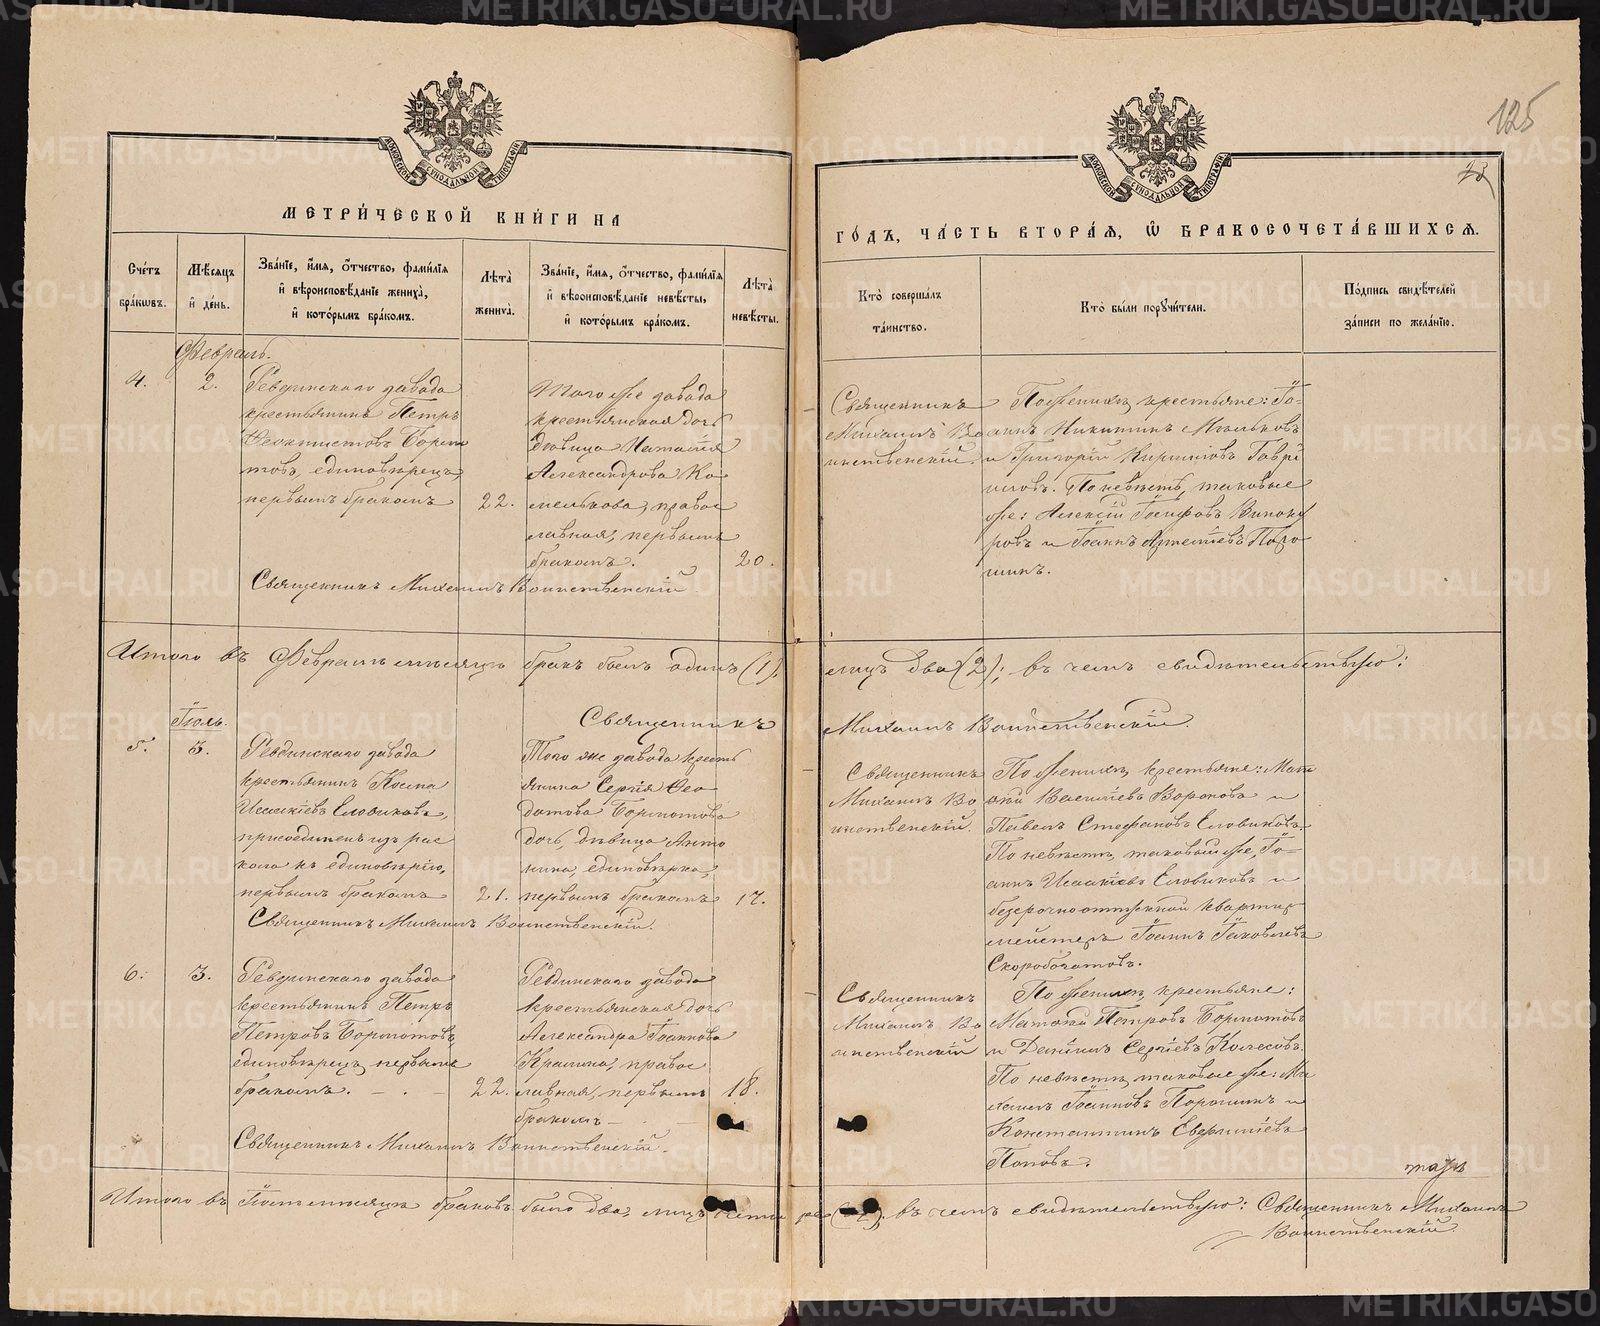 METRIKI.GASO-URAL.RU
МОСКОВСКОЙ СѴНОДАЛЬНОЙ ТИПОГРАФІИ
МЕТРИ́ЧЕСКОЙ КНИ́ГИ НА
Сче́тъ бра́ковъ.
Мѣ́сяцъ и҆ де́нь.
Зва́нїе, и҆́мя, ѻ҆́тчество, фами́лїя и҆ вѣроисповѣ́данїе жениха̀, и҆ кото́рымъ бра́комъ.
Лѣ́та жениха̀.
Зва́нїе, и҆́мя, ѻ҆́тчество, фами́лїя и҆ вѣроисповѣ́данїе невѣ́сты, и҆ кото́рымъ бра́комъ.
Лѣ́та невѣ́сты.
Февраль.
4.
2.
Ревдинскаго завода
крестьянинъ Петръ
Феоктистовъ
товъ, единовѣрецъ,
первымъ бракомъ
22.
Того же завода
крестьянская дочь
дѣвица Наталія
Александрова Ко-
мелькова, правос
лавная, первымъ
бракомъ.
20.
Священникъ Михаилъ Воинственскій.
Итого въ Февралѣ мѣсяцѣ бракъ былъ одинъ (1),
Священникъ
Іюль.
5.
3.
Ревдинскаго завода
крестьянинъ Косма
Исаакіевъ Еловиковъ,
присоединенъ изъ рас
кола къ единовѣрію,
первымъ бракомъ
21.
Того же завода кресть
янина Сергія Ѳео
дотова Бормотова
дочь, дѣвица Анто
нина, единовѣрка,
первымъ бракомъ
17.
Священникъ Михаилъ Воинственскій.
6.
3.
Ревдинскаго завода
крестьянинъ Петръ
Петровъ Бормотовъ,
единовѣрецъ, первымъ
бракомъ.
22.
Ревдинскаго завода
крестьянская дочь
Александра Іоаннова
правос
лавная, первымъ
бракомъ
18.
Священникъ Михаилъ Воинственскій.
Итого въ Іюлѣ мѣсяцѣ браковъ было два, лицъ
125
ГО́ДЪ, ЧА́СТЬ ВТОРА́Я, Ѽ БРАКОСОЧЕТА́ВШИХСЯ.
Кто̀ соверша́лъ та́инство.
Кто̀ бы́ли порꙋчи́тели.
По́дпись свидѣ́телей за́писи по жела́нїю.
Священникъ
Михаилъ Во
инственскій.
По женихѣ, крестьяне: Іо-
аннъ Никитинъ Мѣльковъ
и Григорій Кириловъ Гаврі
иловъ. По невѣстѣ, таковые
же: Алексій Іосифовъ Виноку
ровъ и Іоаннъ Артеміевъ Поро
шинъ.
лицъ два (2); въ чемъ свидѣтельствую:
Михаилъ Воинственскій.
Священникъ
Михаилъ Во
инственскій.
По женихѣ, крестьяне:
Василіевъ и
Павелъ Стефановъ Еловиковъ.
По невѣстѣ, таковый же, Іо-
аннъ Исаакіевъ Еловиковъ и
безсрочноотпускной квартир
мейстеръ Іоаннъ Іаковлевъ
Скоробогатовъ.
Священникъ
Михаилъ Во
инственскій
По женихѣ, крестьяне:
Петровъ Бормотовъ
и Даніилъ Сергіевъ Колесовъ.
По невѣстѣ, таковые же: Ми
хаилъ Іоанновъ Порошинъ и
Константинъ
Поповъ.
въ чемъ свидѣтельствую: Священникъ Михаилъ
Воинственскій.